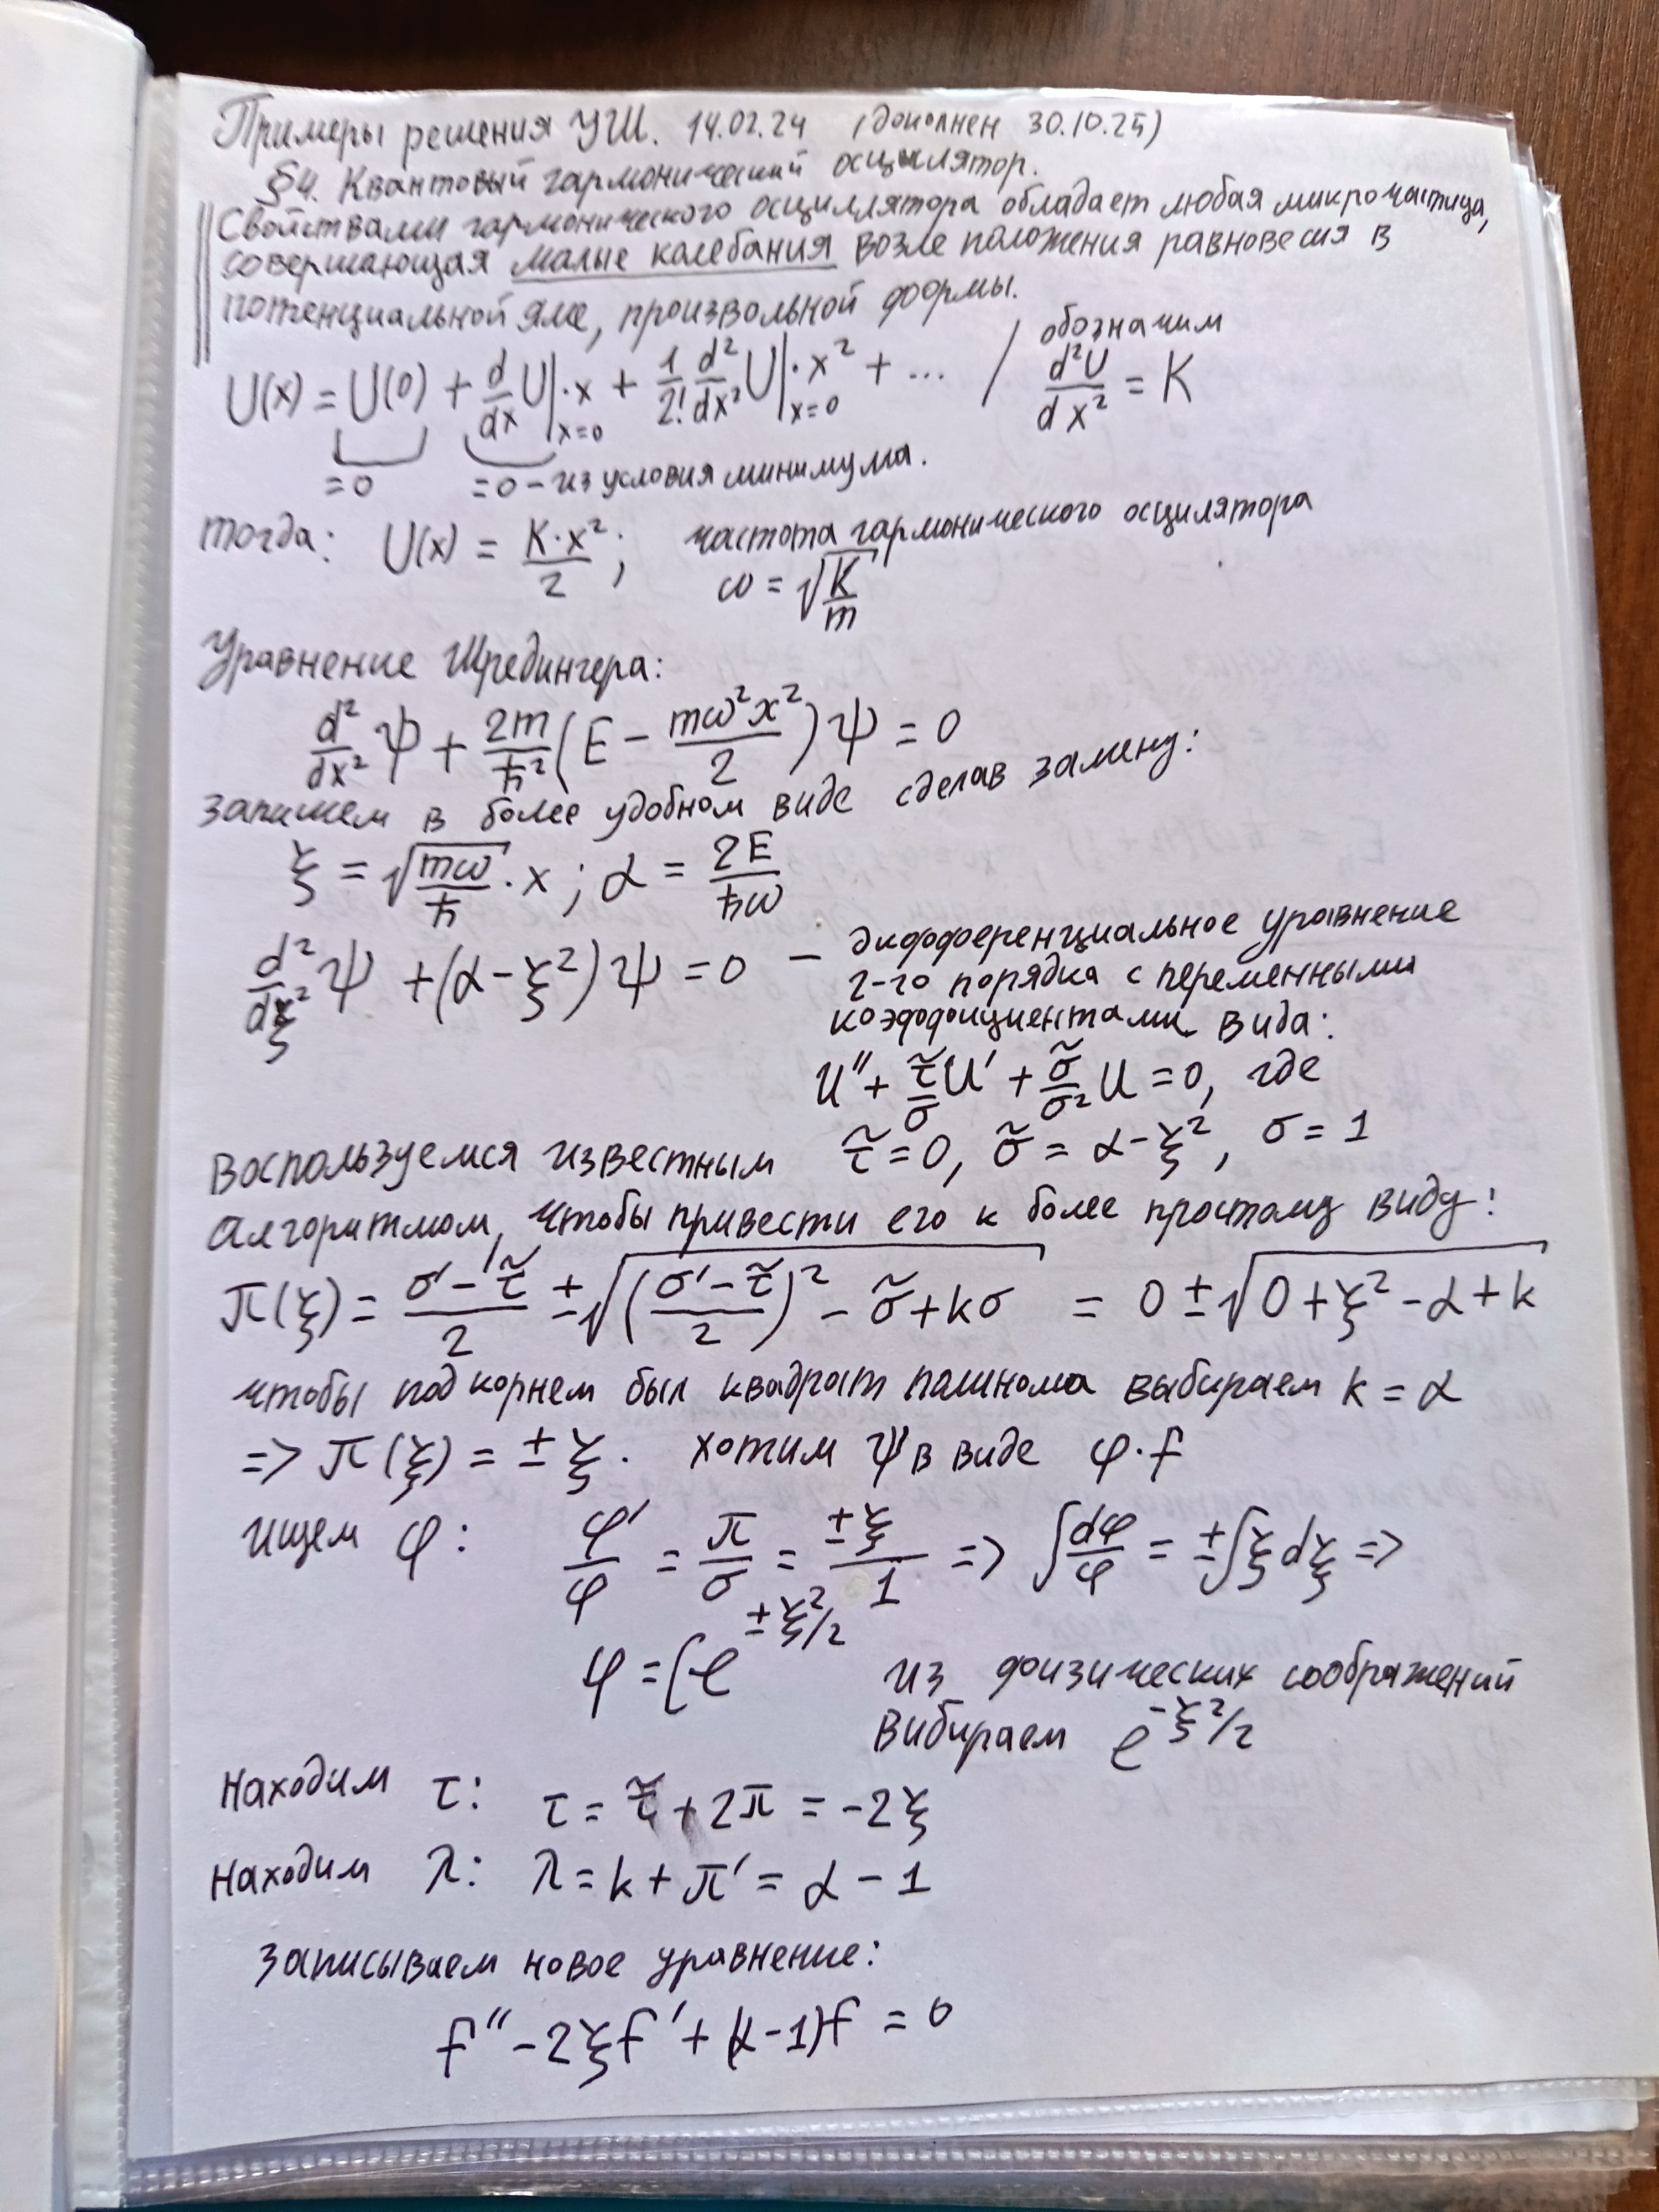 Примеры решения УШ. 14.02.24 (дополнен 30.10.25)
§4. Квантовый гармонический осцилятор.
Свойствами гармонического осциллятора обладает любая микрочастица,
совершающая малые калебания возле положения равновесия в
потенциальной яме, произвольной формы.
U(x) = U(0) + d/dx U|_{x=0} · x + 1/2! d²/dx² U|_{x=0} · x² + ... / обозначим d²U/dx² = K
=0 =0 – из условия минимума.
тогда: U(x) = K·x²/2; частота гармонического осцилятора
ω = √(K/m)
Уравнение Шредингера:
d²/dx² ψ + 2m/ħ² (E − mω²x²/2) ψ = 0
запишем в более удобном виде сделав замену:
ξ = √(mω/ħ) · x; α = 2E/ħω
d²/dξ² ψ + (α − ξ²) ψ = 0 – дифференциальное уравнение
2-го порядка с переменными
коэффициентами вида:
u″ + τ̃/σ u′ + σ̃/σ² u = 0, где
τ̃ = 0, σ̃ = α − ξ², σ = 1
Воспользуемся известным
алгоритмом, чтобы привести его к более простому виду:
π(ξ) = (σ′ − τ̃)/2 ± √(((σ′ − τ̃)/2)² − σ̃ + kσ) = 0 ± √(0 + ξ² − α + k)
чтобы под корнем был квадрат полинома выбираем k = α
=> π(ξ) = ± ξ. хотим ψ в виде φ · f
ищем φ: φ′/φ = π/σ = ±ξ/1 => ∫dφ/φ = ±∫ξdξ =>
φ = Ce^{±ξ²/2} из физических соображений
вибираем e^{−ξ²/2}
Находим τ: τ = τ̃ + 2π = −2ξ
Находим λ: λ = k + π′ = α − 1
Записываем новое уравнение:
f″ − 2ξf′ + (α − 1)f = 0